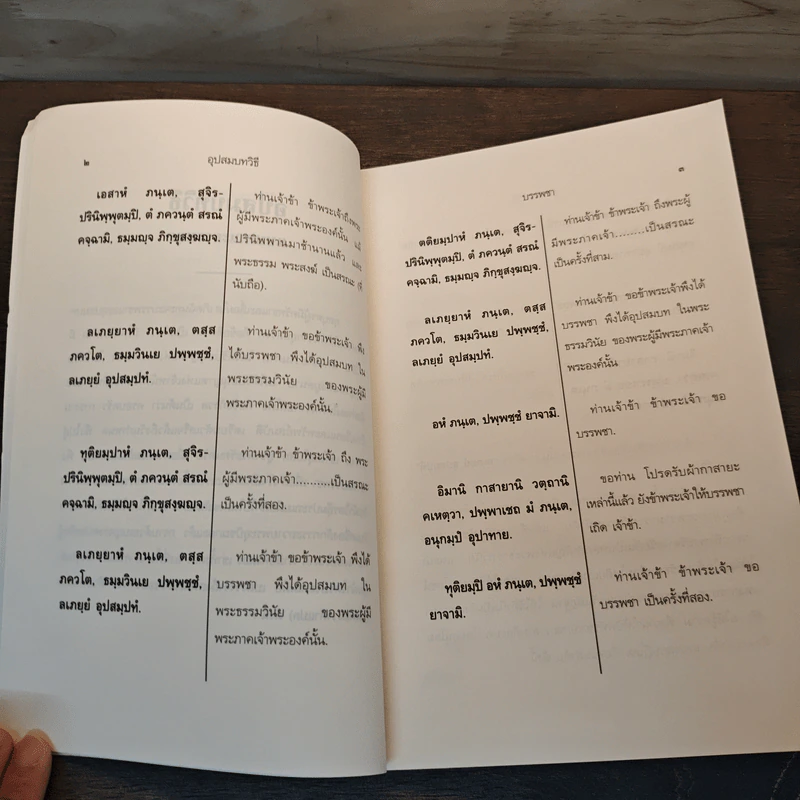 ๒
อุปสมบทวิธี
เอสาหํ ภนฺเต, สุจิร-
ปรินิพฺพุตมฺปิ, ตํ ภควนฺตํ สรณํ
คจฺฉามิ, ธมฺมญฺจ ภิกฺขุสงฺฆญฺจ.
ท่านเจ้าข้า ข้าพระเจ้าถึงพระ
ผู้มีพระภาคเจ้าพระองค์นั้น แม้
ปรินิพพานมาช้านานแล้ว และ
พระธรรม พระสงฆ์ เป็นสรณะ (ที่
นับถือ).
ลเภยฺยาหํ ภนฺเต, ตสฺส
ภควโต, ธมฺมวินเย ปพฺพชฺชํ,
ลเภยฺยํ อุปสมฺปทํ.
ท่านเจ้าข้า ขอข้าพระเจ้า พึง
ได้บรรพชา พึงได้อุปสมบท ใน
พระธรรมวินัย ของพระผู้มี
พระภาคเจ้าพระองค์นั้น.
ทุติยมฺปาหํ ภนฺเต, สุจิร-
ปรินิพฺพุตมฺปิ, ตํ ภควนฺตํ สรณํ
คจฺฉามิ, ธมฺมญฺจ ภิกฺขุสงฺฆญฺจ.
ท่านเจ้าข้า ข้าพระเจ้า ถึง พระ
ผู้มีพระภาคเจ้า..........เป็นสรณะ
เป็นครั้งที่สอง.
ลเภยฺยาหํ ภนฺเต, ตสฺส
ภควโต, ธมฺมวินเย ปพฺพชฺชํ,
ลเภยฺยํ อุปสมฺปทํ.
ท่านเจ้าข้า ขอข้าพระเจ้า พึงได้
บรรพชา พึงได้อุปสมบท ใน
พระธรรมวินัย ของพระผู้มี
พระภาคเจ้าพระองค์นั้น.
บรรพชา
๓
ตติยมฺปาหํ ภนฺเต, สุจิร-
ปรินิพฺพุตมฺปิ, ตํ ภควนฺตํ สรณํ
คจฺฉามิ, ธมฺมญฺจ ภิกฺขุสงฺฆญฺจ.
ท่านเจ้าข้า ข้าพระเจ้า ถึงพระผู้
มีพระภาคเจ้า.........เป็นสรณะ
เป็นครั้งที่สาม.
ลเภยฺยาหํ ภนฺเต, ตสฺส
ภควโต, ธมฺมวินเย ปพฺพชฺชํ,
ลเภยฺยํ อุปสมฺปทํ.
ท่านเจ้าข้า ขอข้าพระเจ้าพึงได้
บรรพชา พึงได้อุปสมบท ในพระ
ธรรมวินัย ของพระผู้มีพระภาคเจ้า
พระองค์นั้น.
อหํ ภนฺเต, ปพฺพชฺชํ ยาจามิ.
ท่านเจ้าข้า ข้าพระเจ้า ขอ
บรรพชา.
อิมานิ กาสายานิ วตฺถานิ
คเหตฺวา, ปพฺพาเชถ มํ ภนฺเต,
อนุกมฺปํ อุปาทาย.
ขอท่าน โปรดรับผ้ากาสายะ
เหล่านี้แล้ว ยังข้าพระเจ้าให้บรรพชา
เถิด เจ้าข้า.
ทุติยมฺปิ อหํ ภนฺเต, ปพฺพชฺชํ
ยาจามิ.
ท่านเจ้าข้า ข้าพระเจ้า ขอ
บรรพชา เป็นครั้งที่สอง.